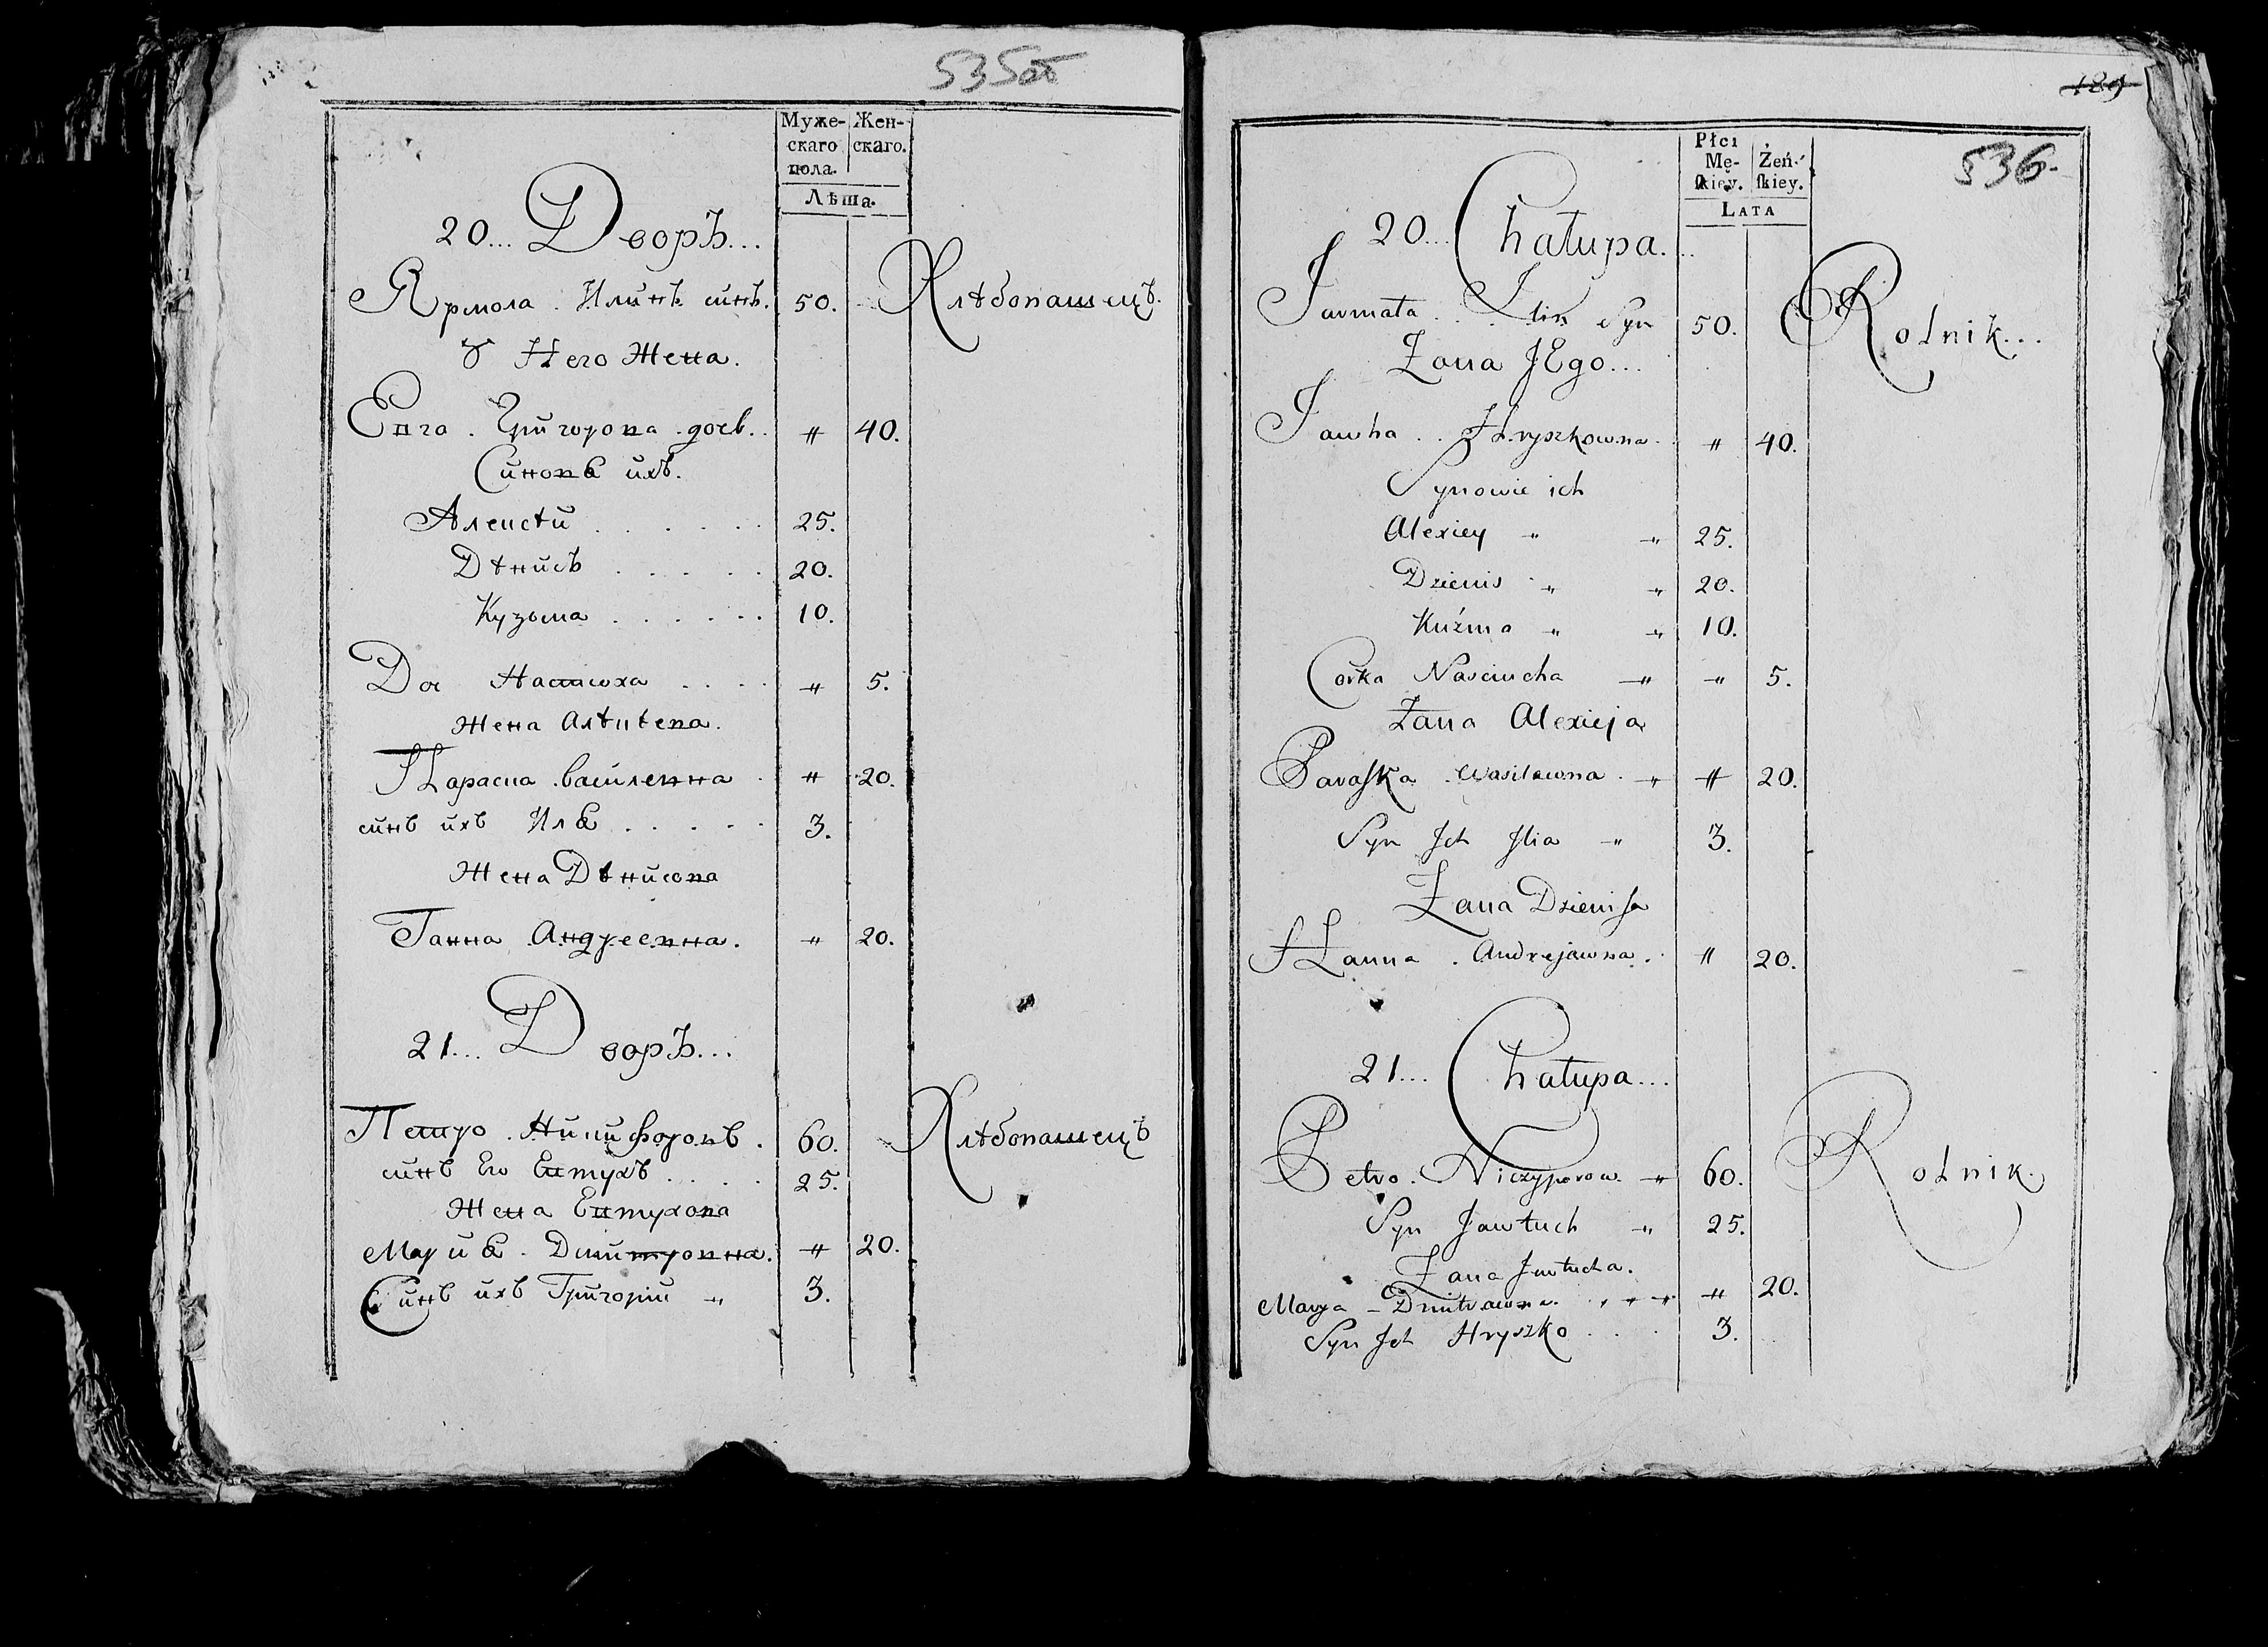 535об
Муже-
скаго
пола.
Жен-
скаго.
Лѣта.
20... Дворъ...
Ярмола . Илинъ синъ. 50. Хлѣбопашецъ.
У Него Жена.
Евга . Григорова . доч. . " 40.
Синове ихъ.
Алексѣй . . . . . . 25.
Дѣнисъ . . . . . 20.
Кузьма . . . . . . 10.
Доч Настюха . . . . " 5.
Жена Алѣкѣева.
Параска . Василевна . " 20.
синъ ихъ Иля . . . . . 3.
Жена Дѣнисова
Ганна Андреевна. " 20.
21... Дворъ...
Петро . Никифоровъ . 60. Хлѣбопашецъ
синъ Его Евтухъ . . . . 25.
Жена Евтухова
Мария . Димитровна. " 20.
Синъ ихъ Григорій " 3.
189
536.
Płci
Mę-
ſkiey.
Żeń-
ſkiey.
LATA
20... Chałupa...
Jarmała . . . Ilin Syn 50. Rolnik...
Żana JEgo...
Jawha . . Hryszkowna. " 40.
Synowie ich
Alexiey " " 25.
Dzienis " " 20.
Kuźma " " 10.
Corka Nasciucha " " 5.
Żana Alexieja
Paraſka . Wasilewna . " " 20.
Syn Jch Jlia " 3.
Żana Dzieniſa
Hanna . Andrejawna . " 20.
21... Chałupa...
Petro . Niczyporow. " 60. Rolnik.
Syn Jawtuch " 25.
Żana Jawtucha.
Marya - Dmitrawna. " " " " 20.
Syn Jch Hryszko . . . 3.